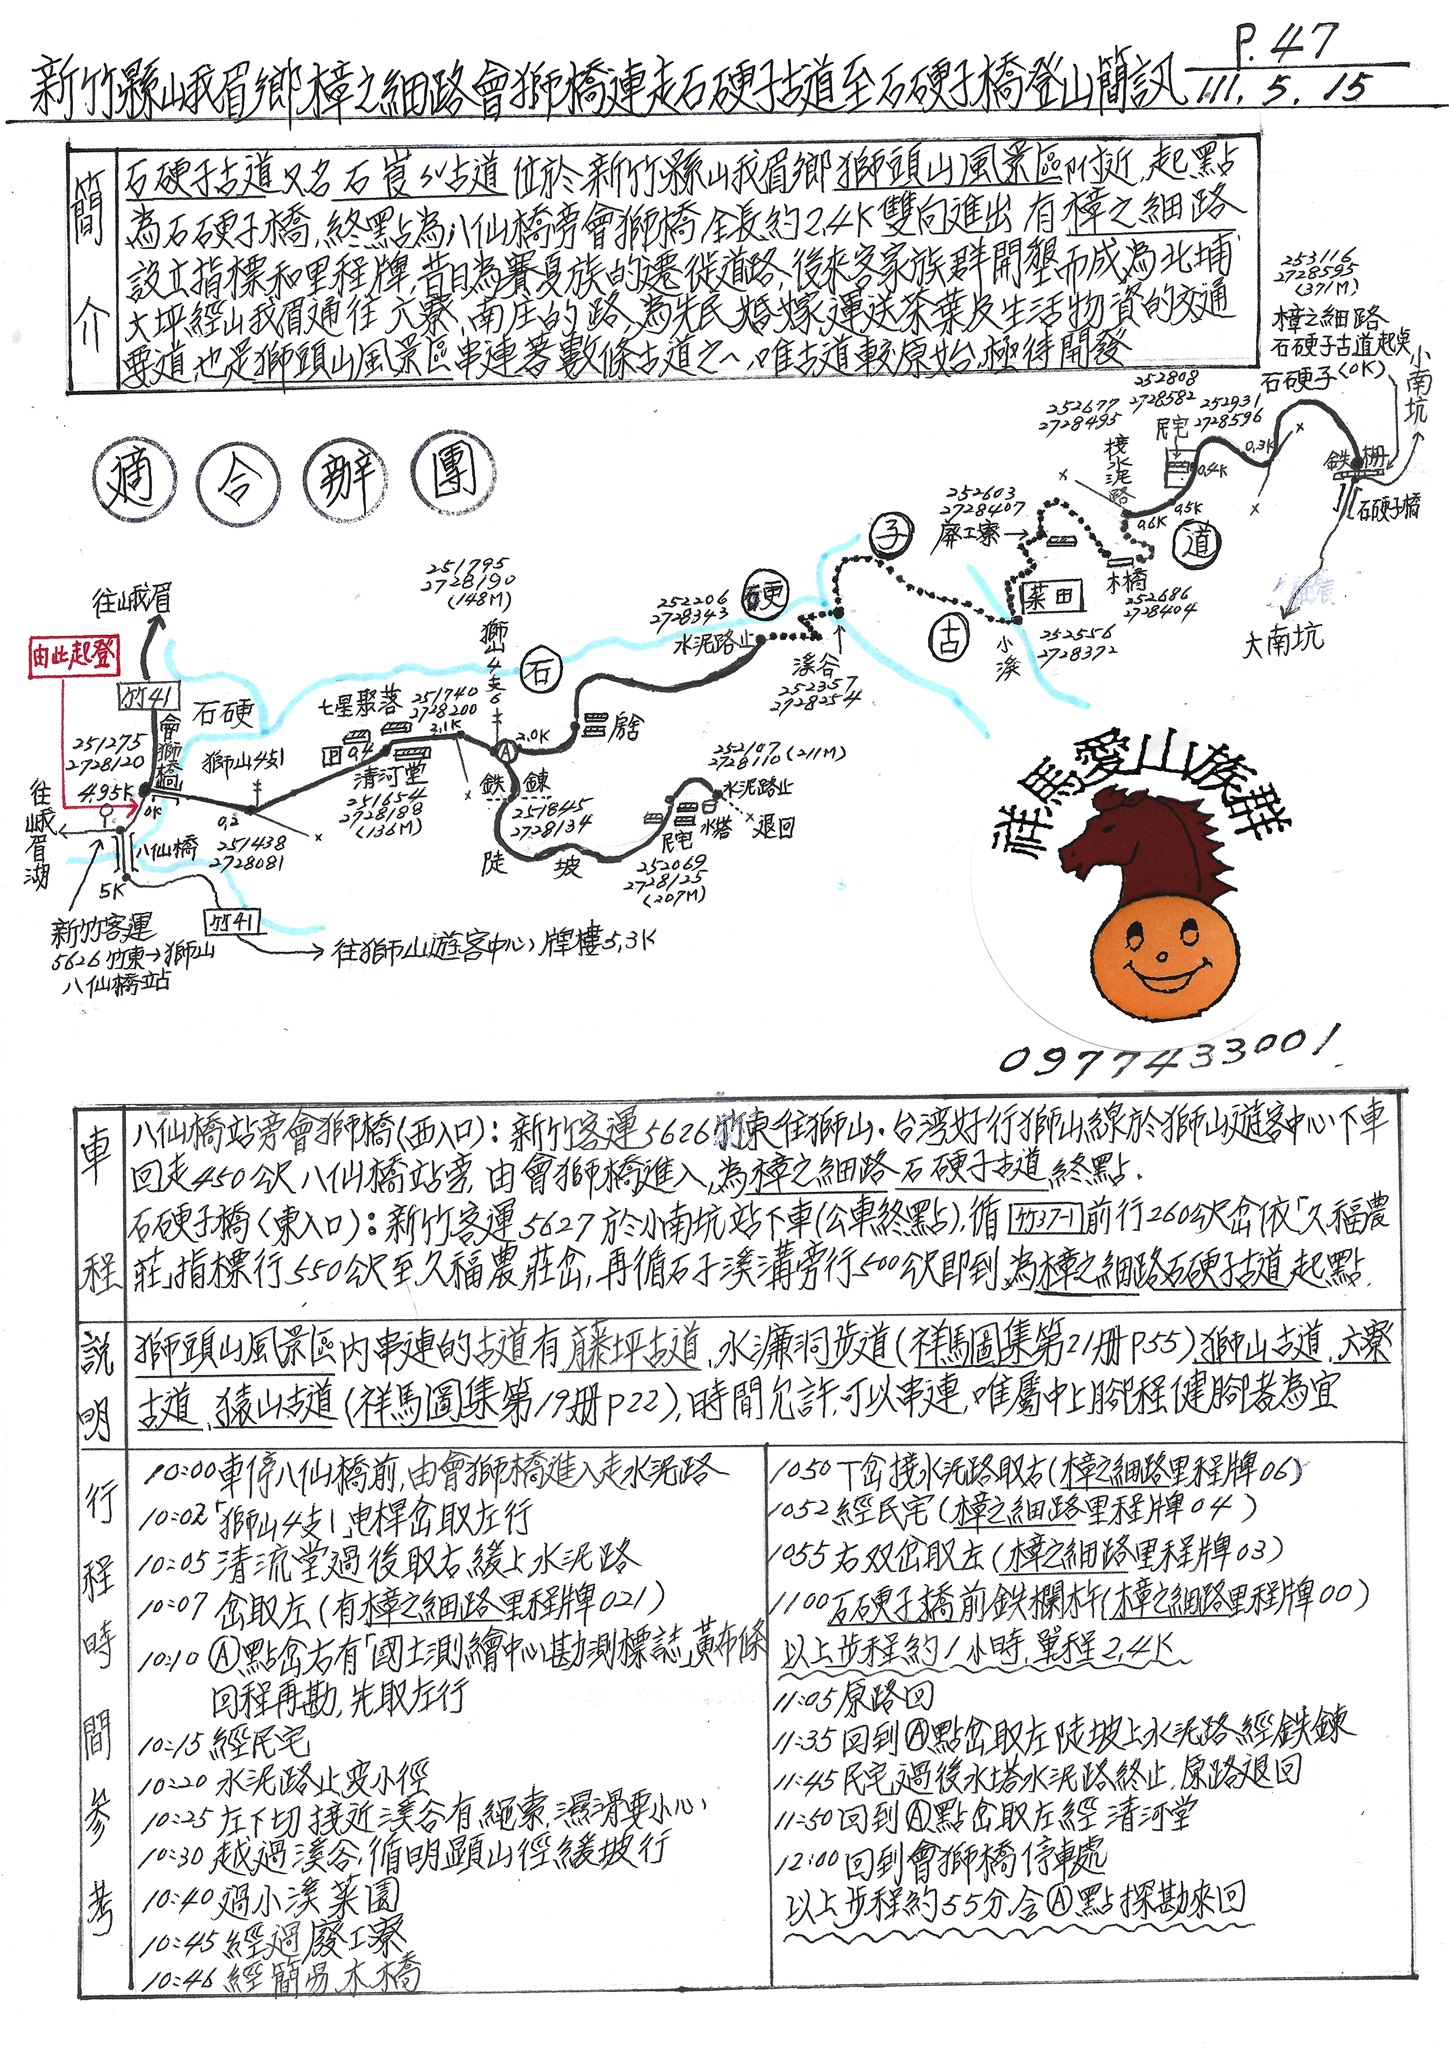 P.47
新竹縣峨眉鄉樟之細路會獅橋連走石硬子古道至石硬子橋登山簡訊 111.5.15
簡介
石硬子古道又名石崀ㄍㄨ古道位於新竹縣峨眉鄉獅頭山風景區附近,起點
為石硬子橋,終點為八仙橋旁會獅橋,全長約2.4K雙向進出,有樟之細路
設立指標和里程牌,昔日為賽夏族的遷徙道路,後來客家族群開墾而成為北埔
大坪經峨眉通往六寮,南庄的路,為先民婚嫁,運送茶葉及生活物資的交通
要道,也是獅頭山風景區串連著數條古道之一,唯古道較原始,極待開發
適合辦團
253116
2728595
(371M)
樟之細路
石硬子古道起點
石硬子(0K)
小南坑
252808
2728582
民宅
252931
2728596
0.3K
0.4K
0.5K
0.6K
鉄柵
石硬子橋
大南坑
252677
2728495
接水泥路
252603
2728407
廢工寮
木橋
252686
2728404
菜田
252556
2728372
小溪
石硬子古道
溪谷
252357
2728254
252206
2728343
水泥路止
251795
2728190
(148M)
獅山4支6
A
2.0K
房舍
鉄鍊
251845
2728134
陡坡
252107(211M)
2728110
水泥路止
退回
水塔
民宅
252069
2728125
(207M)
251740
2728200
2.1K
七星聚落
田
0.4
清河堂
251654
2728188
(136M)
獅山4支1
0.2
251438
2728081
石硬
往峨眉
由此起登
竹41
會獅橋
251275
2728120
4.95K
0K
往峨眉湖
八仙橋
5K
竹41
往獅山(遊客中心)牌樓5.3K
新竹客運
5626竹東→獅山
八仙橋站
祥馬愛山族群
0977433001
車程
八仙橋站旁會獅橋(西入口):新竹客運5626竹東往獅山.台湾好行獅山線於獅山遊客中心下車
回走450公尺八仙橋站旁,由會獅橋進入,為樟之細路石硬子古道終點.
石硬子橋(東入口):新竹客運5627於小南坑站下車(公車終點),循竹37-1前行260公尺岔依「久福農
莊」指標行550公尺至久福農莊岔,再循石子溪溝旁行500公尺即到,為樟之細路石硬子古道起點.
說明
獅頭山風景區内串連的古道有藤坪古道,水濂洞步道(祥馬圖集第21册P55)獅山古道,六寮
古道,猿山古道(祥馬圖集第19册P22),時間允許,可以串連,唯屬中上腳程健腳者為宜
行程時間參考
10:00車停八仙橋前,由會獅橋進入走水泥路
10:02「獅山4支1」电桿岔取左行
10:05清流堂過後取右緩上水泥路
10:07岔取左(有樟之細路里程牌021)
10:10Ⓐ點岔右有「國土測繪中心勘測標誌」黃布條
回程再勘,先取左行
10:15經民宅
10:20水泥路止变小徑
10:25左下切接近溪谷有繩索,濕滑要小心
10:30越過溪谷,循明顯山徑緩坡行
10:40過小溪菜園
10:45經過廢工寮
10:46經簡易木橋
1050丁岔接水泥路取右(樟之細路里程牌06)
1052經民宅(樟之細路里程牌04)
1055右双岔取左(樟之細路里程牌03)
1100石硬子橋前鉄欄杆(樟之細路里程牌00)
以上步程約1小時,單程2.4K
11:05原路回
11:35回到Ⓐ點岔取左陡坡上水泥路經鉄鍊
11:45民宅過後水塔水泥路終止,原路退回
11:50回到Ⓐ點岔取左經清河堂
12:00回到會獅橋停車處
以上步程約55分,含Ⓐ點探勘來回